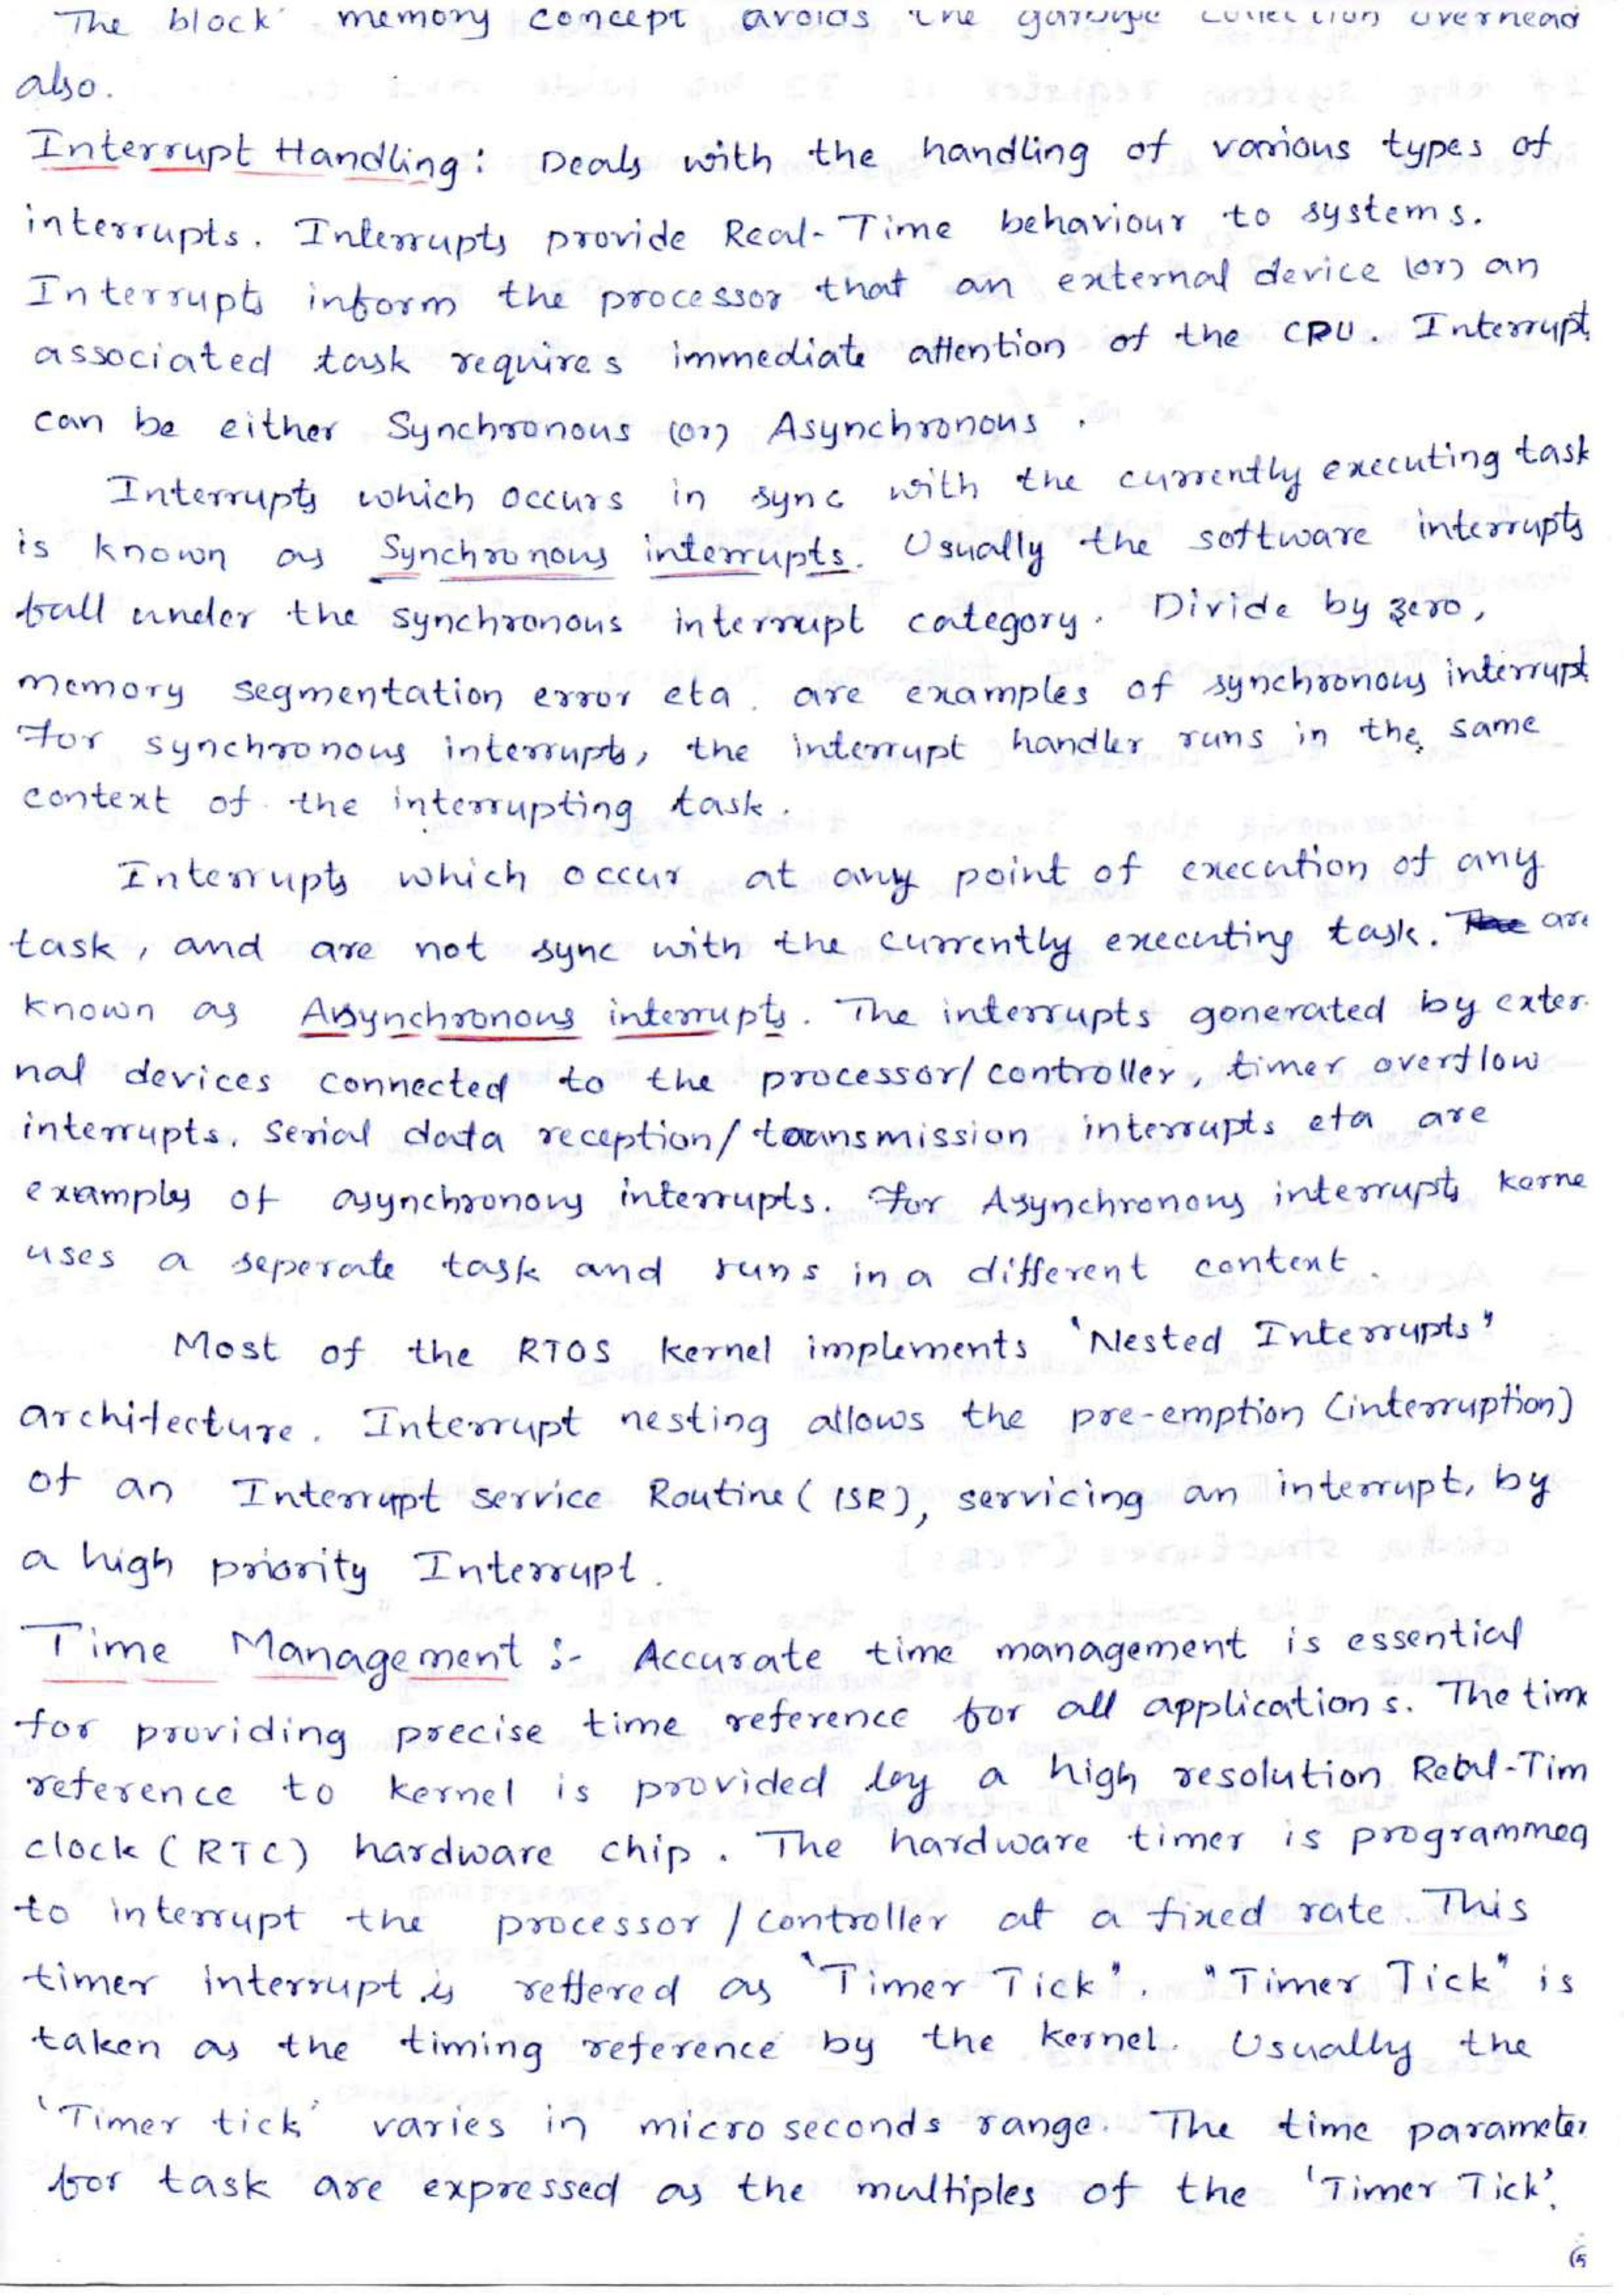 The block memory concept avoids the garbage collection overhead
also.
Interrupt Handling: Deals with the handling of various types of
interrupts. Interrupts provide Real-Time behaviour to systems.
Interrupts inform the processor that an external device (or) an
associated task requires immediate attention of the CPU. Interrupts
can be either Synchronous (or) Asynchronous.
Interrupts which occurs in sync with the currently executing task
is known as Synchronous interrupts. Usually the software interrupts
fall under the synchronous interrupt category. Divide by zero,
memory segmentation error etc. are examples of synchronous interrupt.
For synchronous interrupts, the interrupt handler runs in the same
context of the interrupting task.
Interrupts which occur at any point of execution of any
task, and are not sync with the currently executing task. are
known as Asynchronous interrupts. The interrupts generated by exter-
nal devices connected to the processor/controller, timer overflow
interrupts, Serial data reception/transmission interrupts etc are
examples of asynchronous interrupts. For Asynchronous interrupts kerne
uses a seperate task and runs in a different context.
Most of the RTOS kernel implements 'Nested Interrupts"
architecture. Interrupt nesting allows the pre-emption (interruption)
of an Interrupt service Routine (ISR), servicing an interrupt, by
a high priority Interrupt.
Time Management :- Accurate time management is essential
for providing precise time reference for all applications. The time
reference to kernel is provided by a high resolution Real-Tim
clock (RTC) hardware chip. The hardware timer is programmed
to interrupt the processor / controller at a fixed rate. This
timer interrupt is reffered as 'Timer Tick". "Timer Tick" is
taken as the timing reference by the kernel. Usually the
'Timer tick' varies in micro seconds range. The time parameter
for task are expressed as the multiples of the 'Timer Tick'.